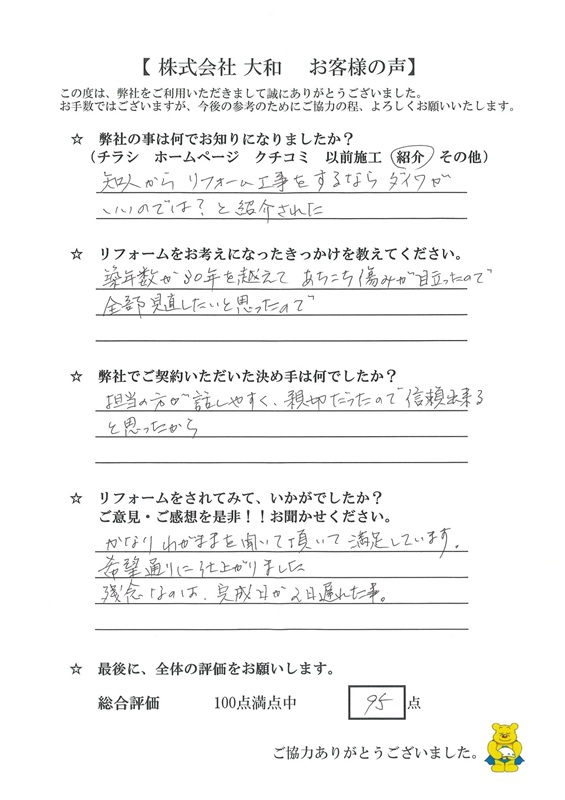 【 株式会社 大和　お客様の声】
この度は、弊社をご利用いただきまして誠にありがとうございました。
お手数ではございますが、今後の参考のためにご協力の程、よろしくお願いいたします。
☆　弊社の事は何でお知りになりましたか？
（チラシ　ホームページ　クチコミ　以前施工　紹介　その他）
知人から リフォーム工事をするなら ダイワが
いいのでは？と紹介された
☆　リフォームをお考えになったきっかけを教えてください。
築年数が30年を越えて あちこち傷みが目立ったので
全部見直したいと思ったので
☆　弊社でご契約いただいた決め手は何でしたか？
担当の方が話しやすく、親切だったので信頼出来る
と思ったから
☆　リフォームをされてみて、いかがでしたか？
ご意見・ご感想を是非！！お聞かせください。
かなりわがままを聞いて頂いて満足しています。
希望通りに仕上がりました
残念なのは、完成日が2日遅れた事。
☆　最後に、全体の評価をお願いします。
総合評価　100点満点中　95 点
ご協力ありがとうございました。